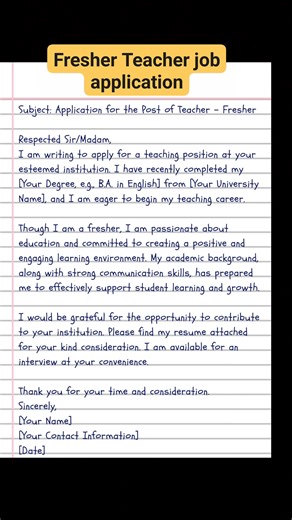 Fresher Teacher job
application
Subject: Application for the Post of Teacher - Fresher
Respected Sir/Madam,
I am writing to apply for a teaching position at your
esteemed institution. I have recently completed my
[Your Degree, e.g., B.A. in English] from [Your University
Name], and I am eager to begin my teaching career.
Though I am a fresher, I am passionate about
education and committed to creating a positive and
engaging learning environment. My academic background,
along with strong communication skills, has prepared
me to effectively support student learning and growth.
I would be grateful for the opportunity to contribute
to your institution. Please find my resume attached
for your kind consideration. I am available for an
interview at your convenience.
Thank you for your time and consideration.
Sincerely,
[Your Name]
[Your Contact Information]
[Date]